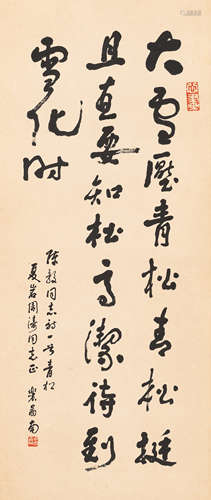 大雪壓青松青松挺
且直要知松高潔待到
雪化时
陈毅同志诗一首青松
夏岩周涛同志正